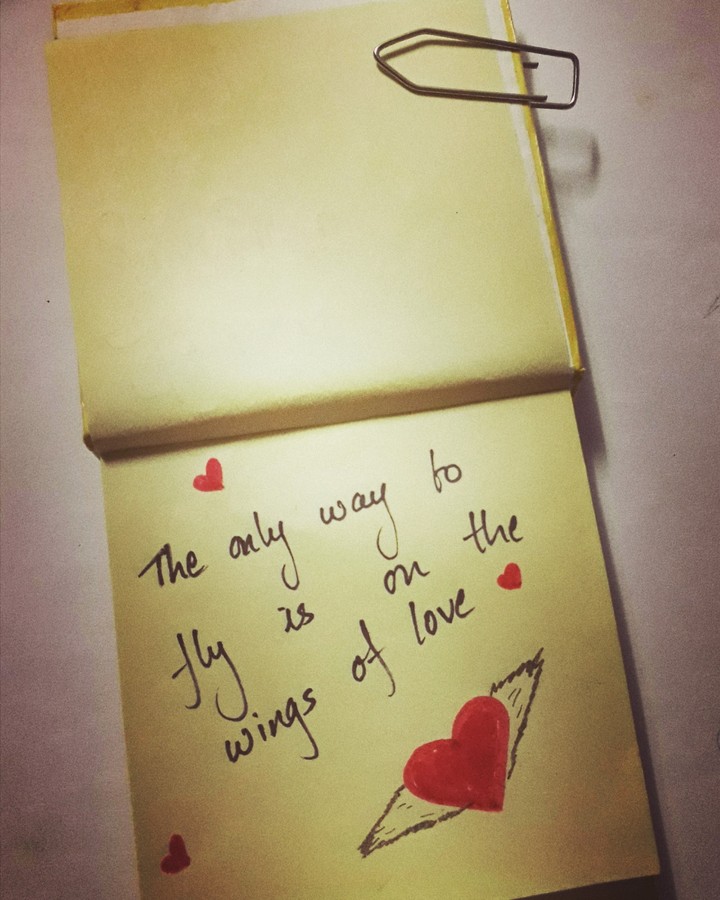 The only way to
fly is on the
wings of love